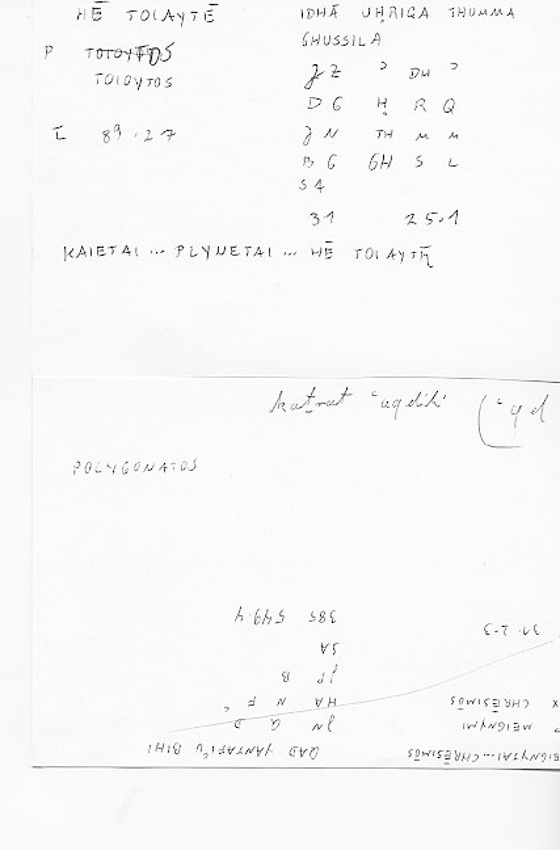 HĒ TOIAYTĒ
P TOTOYTOS
TOIOYTOS
I 89.27
IDHĀ UḤRIGA THUMMA
GHUSSILA
JZ ʾ DH ʾ
DG Ḥ R Q
JN TH M M
BG GH S L
SA
31 25.1
KAIETAI ... PLYNETAI ... HĒ TOIAYTĒ
katrat ʿuqdih
POLYGONATOS
EIGNYTAI...CHRĒSIMOS
MEIGNYMI
X CHRĒSIMOS
31. 2-3
QAD YANTAFIʿU BIHI
JN Q D
HA N F ʿ
JP B
SA
385 549.4